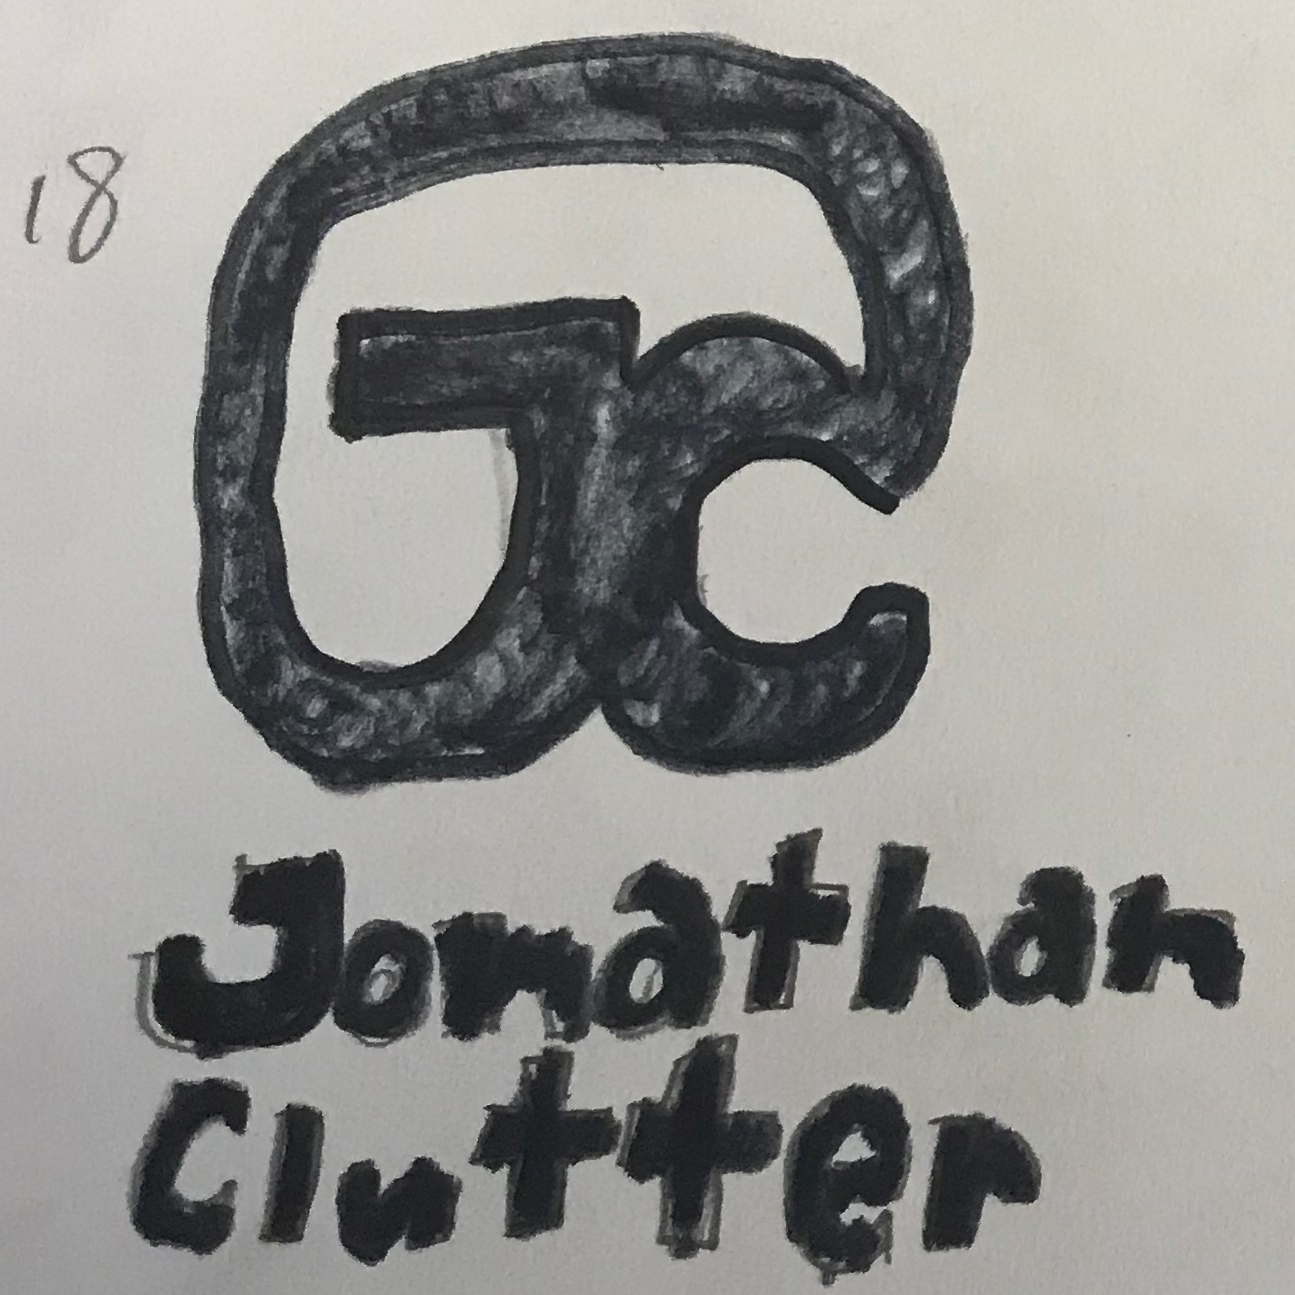 18
JC
Jonathan
Clutter